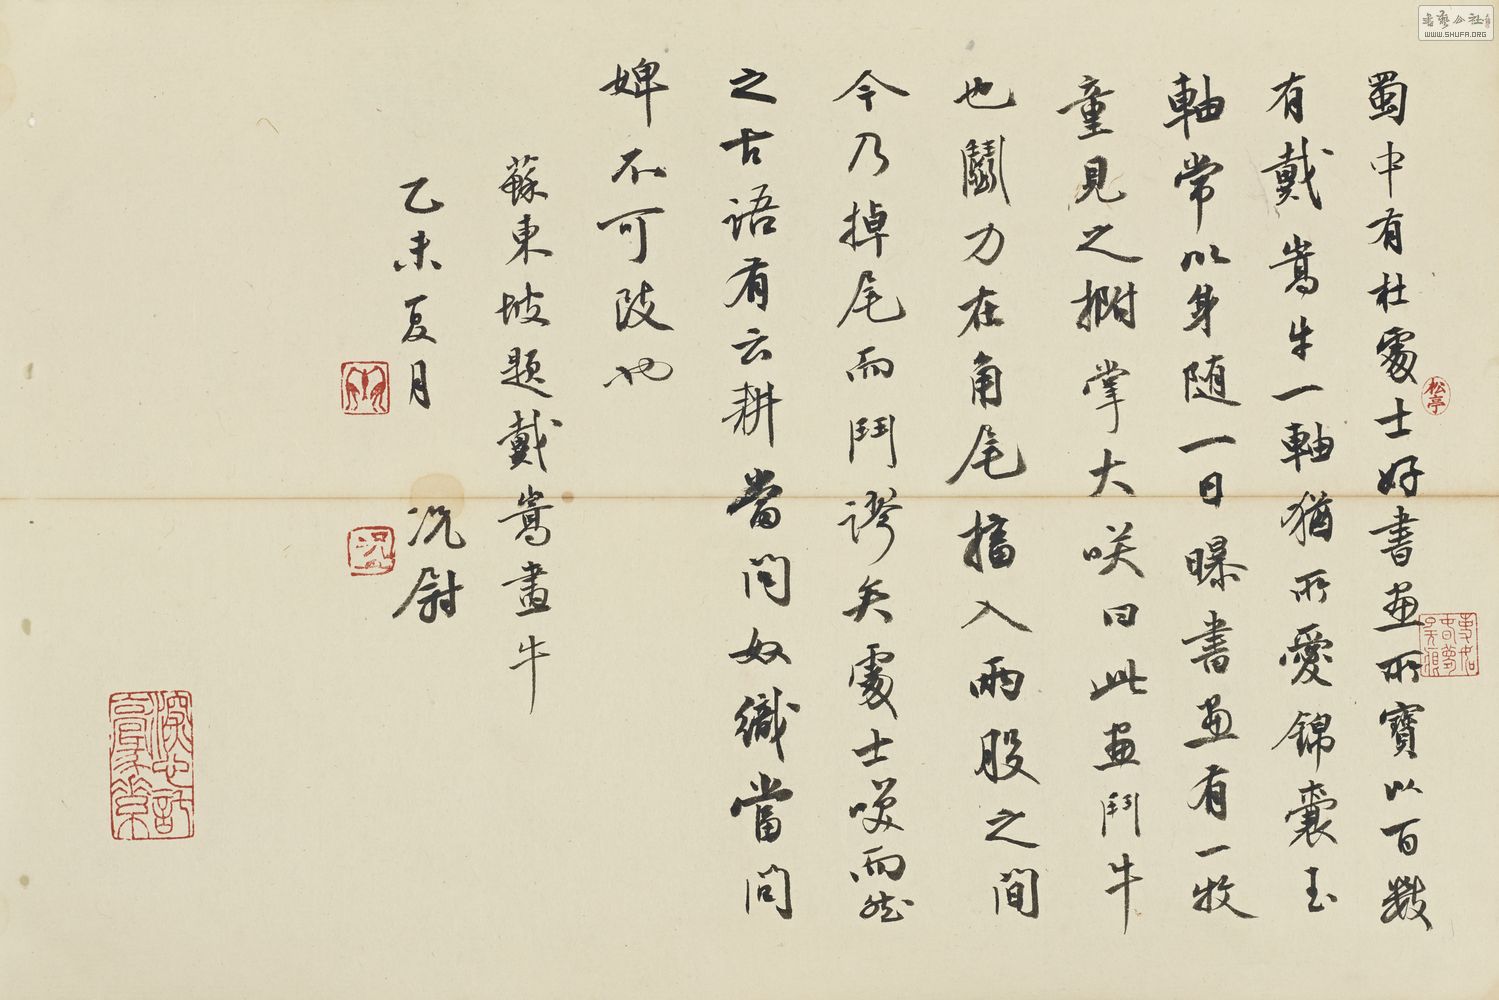 蜀中有杜處士好書画所寶以百數
有戴嵩牛一軸猶所愛錦囊玉
軸常以身随一日曝書画有一牧
童見之拊掌大咲曰此画鬥牛
也鬭力在角尾搐入兩股之間
今乃掉尾而鬥謬矣處士咲而然
之古語有云耕當問奴織當問
婢不可改也
蘇東坡題戴嵩畫牛
乙未夏月 况尉
松亭
書藝公社
WWW.SHUFA.ORG